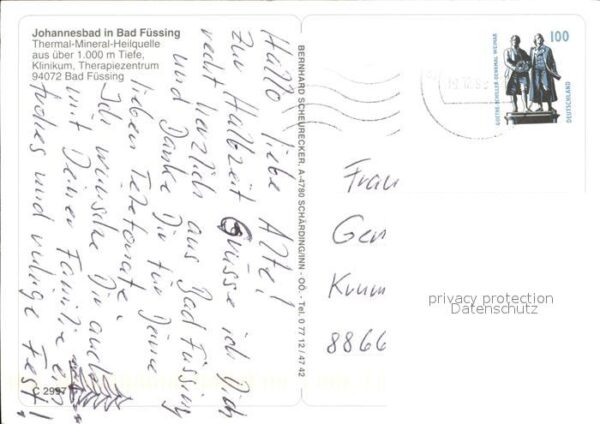 Johannesbad in Bad Füssing
Thermal-Mineral-Heilquelle
aus über 1.000 m Tiefe,
Klinikum, Therapiezentrum
94072 Bad Füssing
Hallo liebe Alte!
Zur Halbzeit Grüsse ich Dich
recht herzlich aus Bad Füssing
und Danke Dir für Deine
lieben Telefonate.
Ich wünsche Dir auch
mit Deiner Familie ein
frohes und ruhige Fest!
C 2997
BERNHARD SCHEURECKER, A-4780 SCHÄRDING/INN - OÖ. - Tel. 0 77 12 / 47 42
GOETHE-SCHILLER-DENKMAL WEIMAR
100
DEUTSCHLAND
Frau
Ger
Krum
8866
privacy protection
Datenschutz